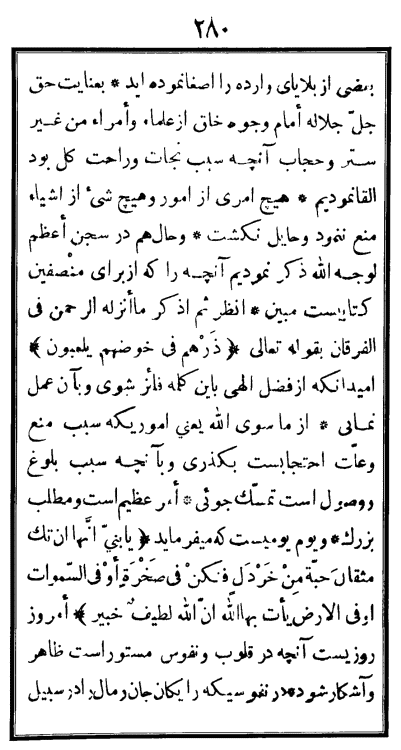 ٢٨٠
بعضى از بلاياى وارده را اصغا نموده ايد * بعنايت حق
جلّ جلاله أمام وجوه خلق از علماء وأمراء من غير
ستر وحجاب آنچه سبب نجات وراحت كل بود
القا نموديم * هيچ امرى از امور وهيچ شئ از اشياء
منع ننمود وحايل نگشت * وحال هم در سجن أعظم
لوجه الله ذكر نموديم آنچه را كه از براى منصفين
كتابيست مبين * انظر ثم اذكر ما أنزله الرحمن فى
الفرقان بقوله تعالى ﴿ ذَرْهم فى خوضهم يلعبون ﴾
اميد آنكه از فضل الهى باين كلمه فائز شوى وبآن عمل
نمائى * از ما سوى الله يعني اموريكه سبب منع
وعلّت احتجابست بگذرى وبآنچه سبب بلوغ
ووصول است تمسّك جوئى * أمر عظيم است ومطلب
بزرك * ويوم يوميست كه ميفرمايد ﴿ يابنىّ انّها ان تك
مثقال حبّة مِنْ خَرْدَلٍ فتكنْ فى صَخْرَةٍ أوْ فى السّموات
او فى الارض يأت بها الله انّ الله لطيفٌ خبير ﴾ أمروز
روزيست آنچه در قلوب ونفوس مستور است ظاهر
وآشكار شود * در نفوسيكه رايگان جان ومال را در سبيل